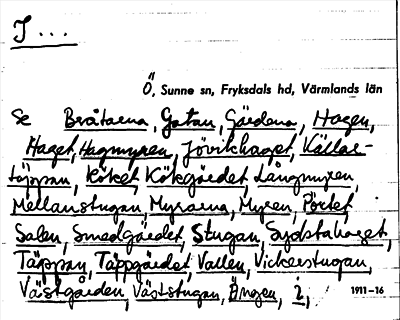 I ...
Ö, Sunne sn, Fryksdals hd, Värmlands län
Se Bråtarna, Gatan, Gärdena, Hagen,
Haget, Hagmyren, Jövikhaget, Källar-
täppan, Köket, Kökgärdet, Långmyren,
Mellanstugan, Myrarna, Myren, Pörtet,
Salen, Smedgärdet, Stugan, Sydstahaget,
Täppan, Täppgärdet, Vallen, Vickerstugan,
Västgården, Väststugan, Ängen, i,
1911-16